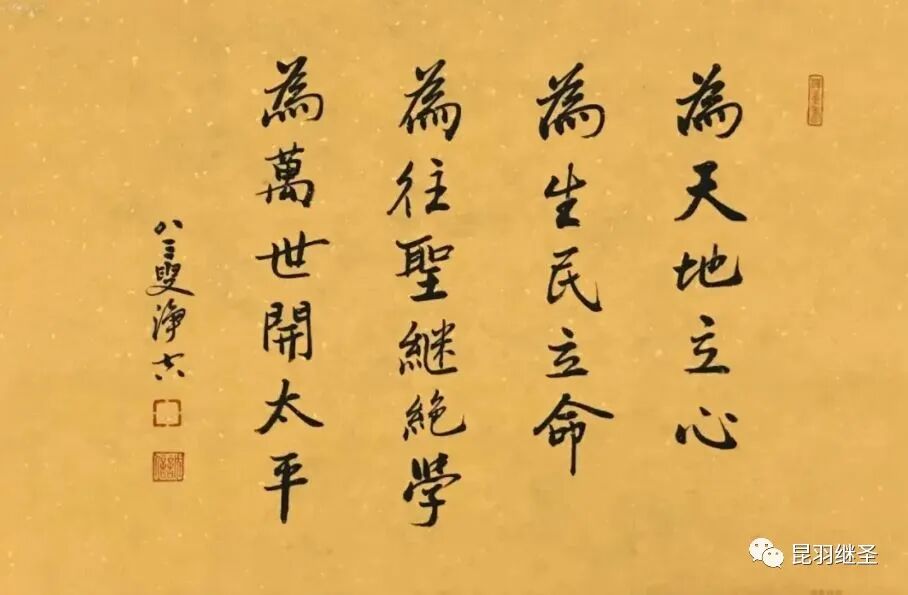 為天地立心
為生民立命
為往聖継絶學
為萬世開太平
八三叟淨空
昆羽继圣